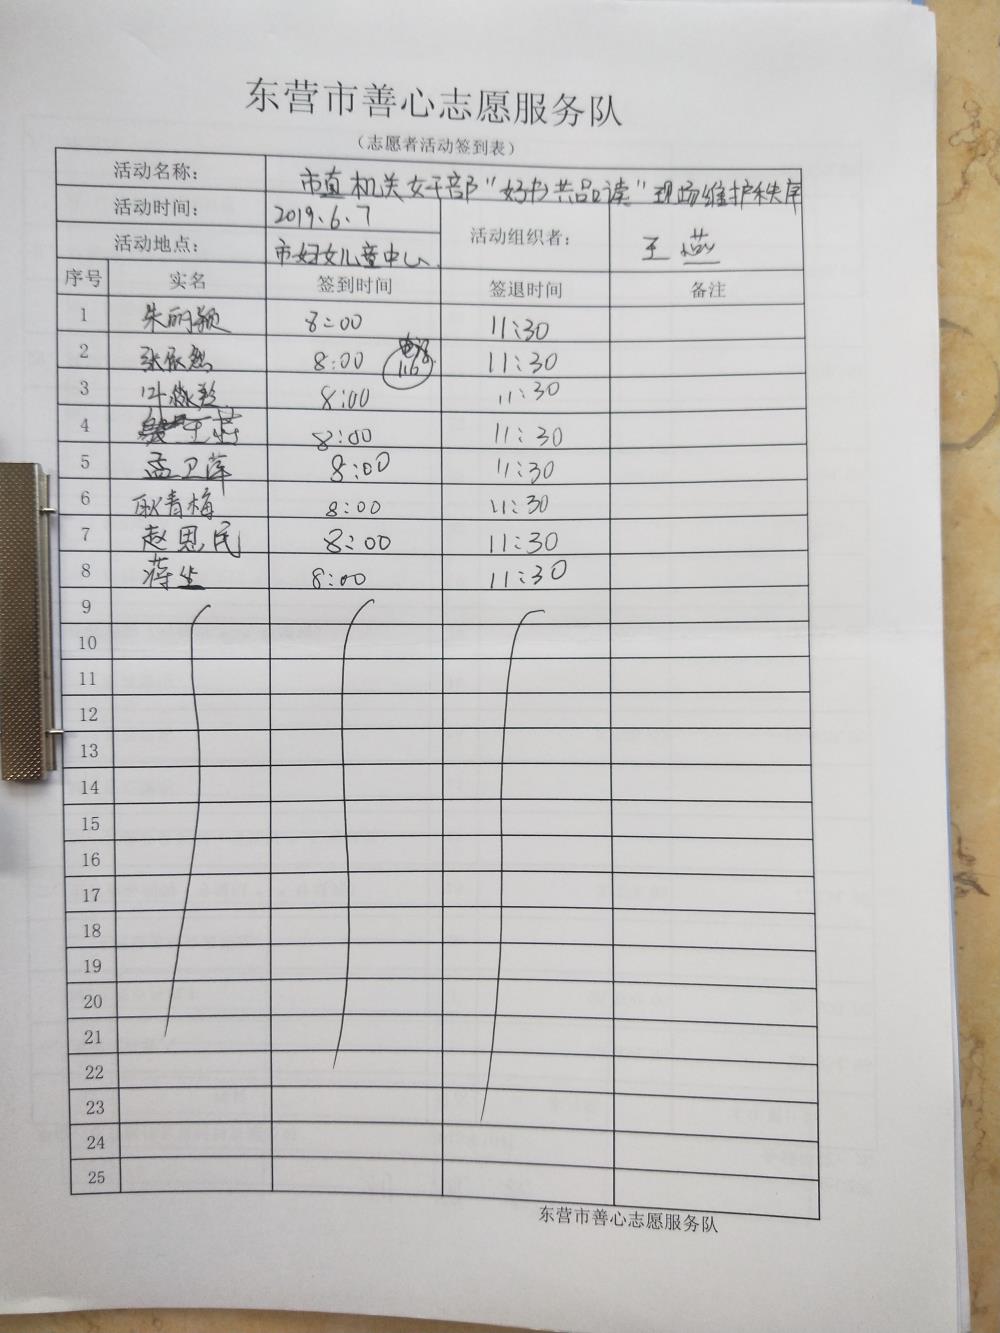 东营市善心志愿服务队
（志愿者活动签到表）
活动名称： 市直机关女干部“好书共品读”现场维护秩序
活动时间： 2019.6.7 活动组织者： 王燕
活动地点： 市妇女儿童中心
序号 实名 签到时间 签退时间 备注
1 朱丽颖 8:00 11:30
2 张依然 8:00 116 11:30
3 叶 8:00 11:30
4 王燕 8:00 11:30
5 孟卫萍 8:00 11:30
6 耿青梅 8:00 11:30
7 赵恩民 8:00 11:30
8 蒋 8:00 11:30
9
10
11
12
13
14
15
16
17
18
19
20
21
22
23
24
25
东营市善心志愿服务队